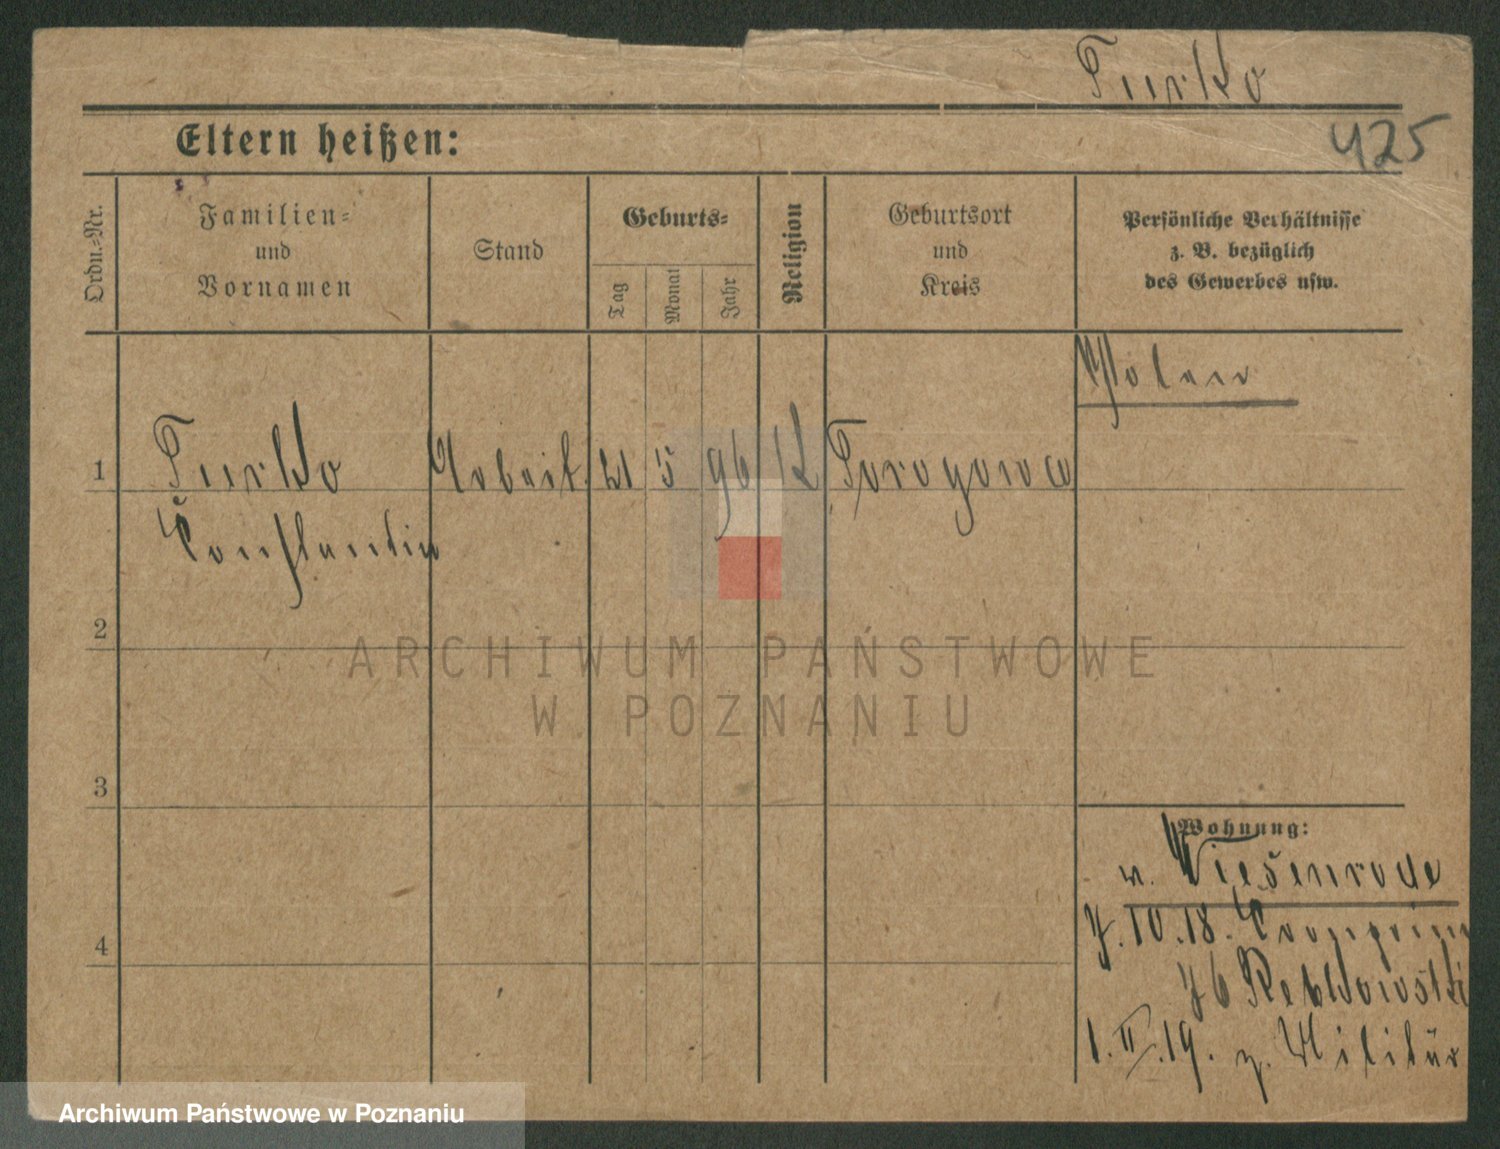 Turko
425
Eltern heißen:
Ordn.-Nr.
Familien-
und
Vornamen
Stand
Geburts-
Tag
Monat
Jahr
Religion
Geburtsort
und
Kreis
Persönliche Verhältnisse
z. B. bezüglich
des Gewerbes usw.
Polen
1 Turko Arbeit. 21 5 96 K
Constantin
2
3
4
Wohnung:
w. Wiesenrode
7.10.18.
1.II.19. z. Militär
ARCHIWUM PAŃSTWOWE
W POZNANIU
Archiwum Państwowe w Poznaniu